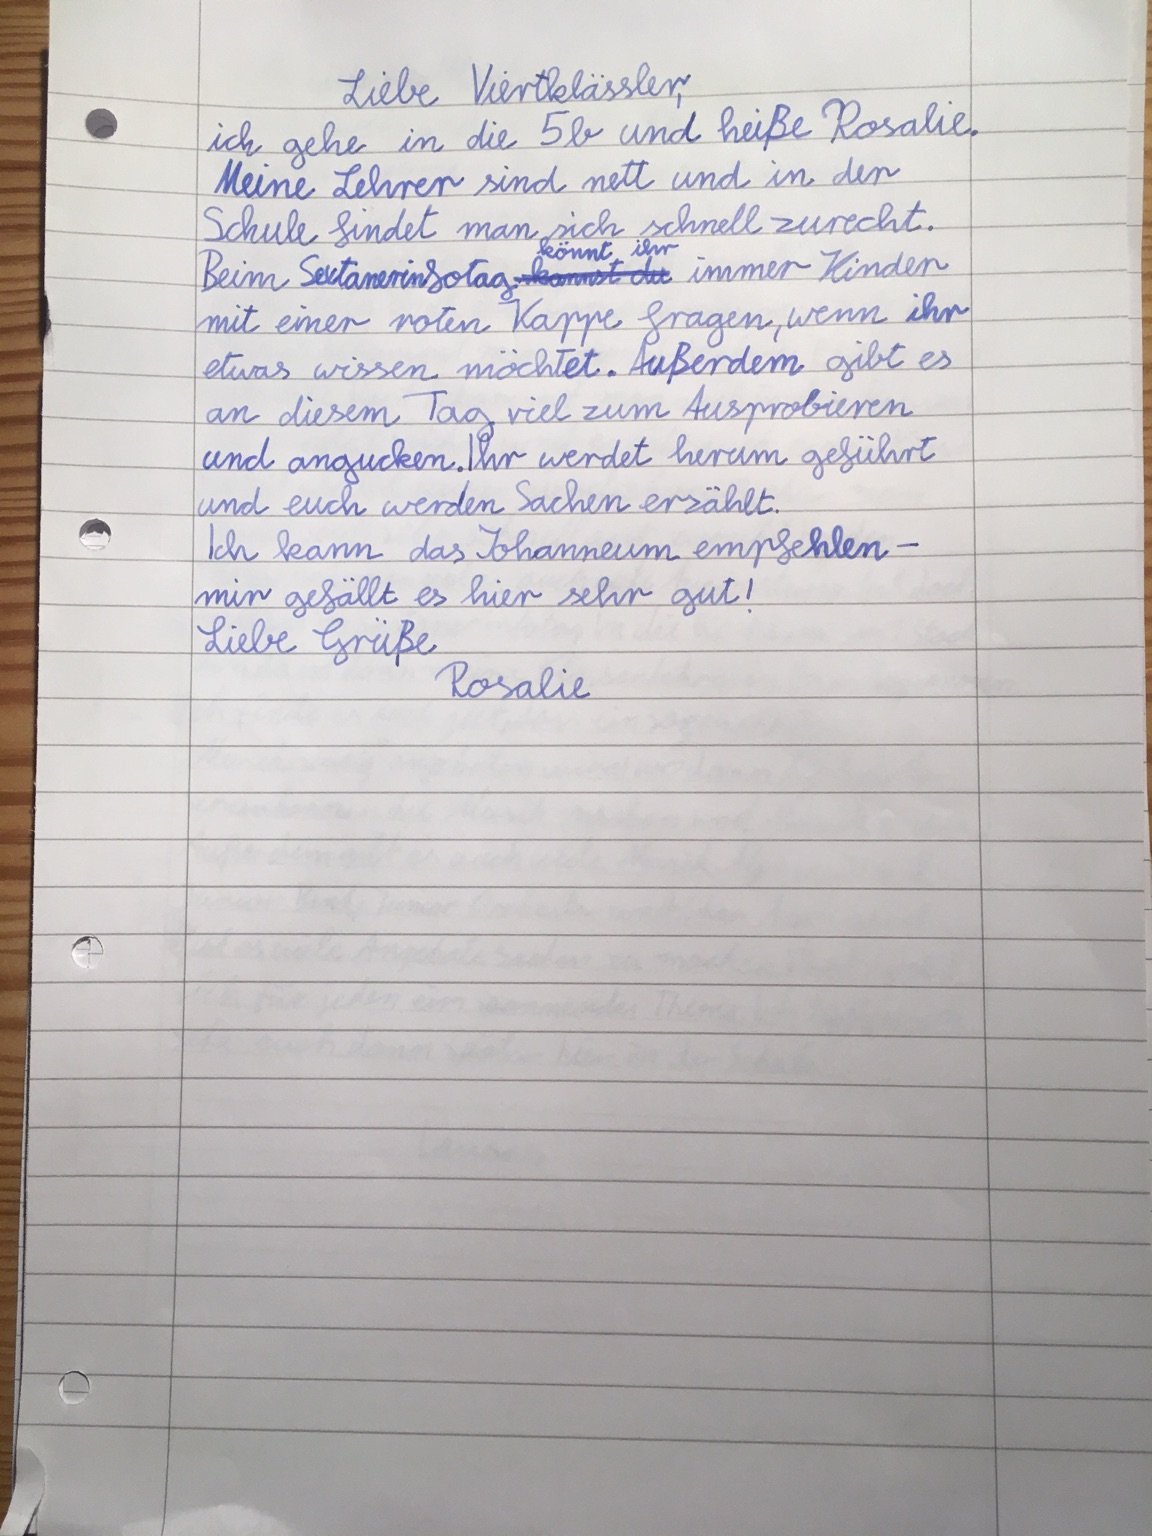 Liebe Viertklässler,
ich gehe in die 5b und heiße Rosalie.
Meine Lehrer sind nett und in der
Schule findet man sich schnell zurecht.
könnt ihr
Beim Sextanerinfotag kannst du immer Kinder
mit einer roten Kappe fragen, wenn ihr
etwas wissen möchtet. Außerdem gibt es
an diesem Tag viel zum Ausprobieren
und angucken. Ihr werdet herum geführt
und euch werden Sachen erzählt.
Ich kann das Johanneum empfehlen –
mir gefällt es hier sehr gut!
Liebe Grüße
Rosalie